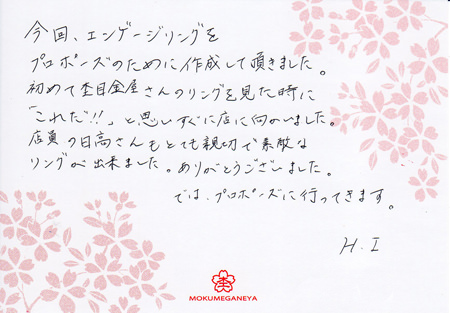 今回、エンゲージリングを
プロポーズのために作成して頂きました。
初めて杢目金屋さんのリングを見た時に
「これだ!!」と思いすぐに店に向かいました。
店員の日高さんもとても親切で素敵な
リングが出来ました。ありがとうございました。
では、プロポーズに行ってきます。
H.I
杢
MOKUMEGANEYA